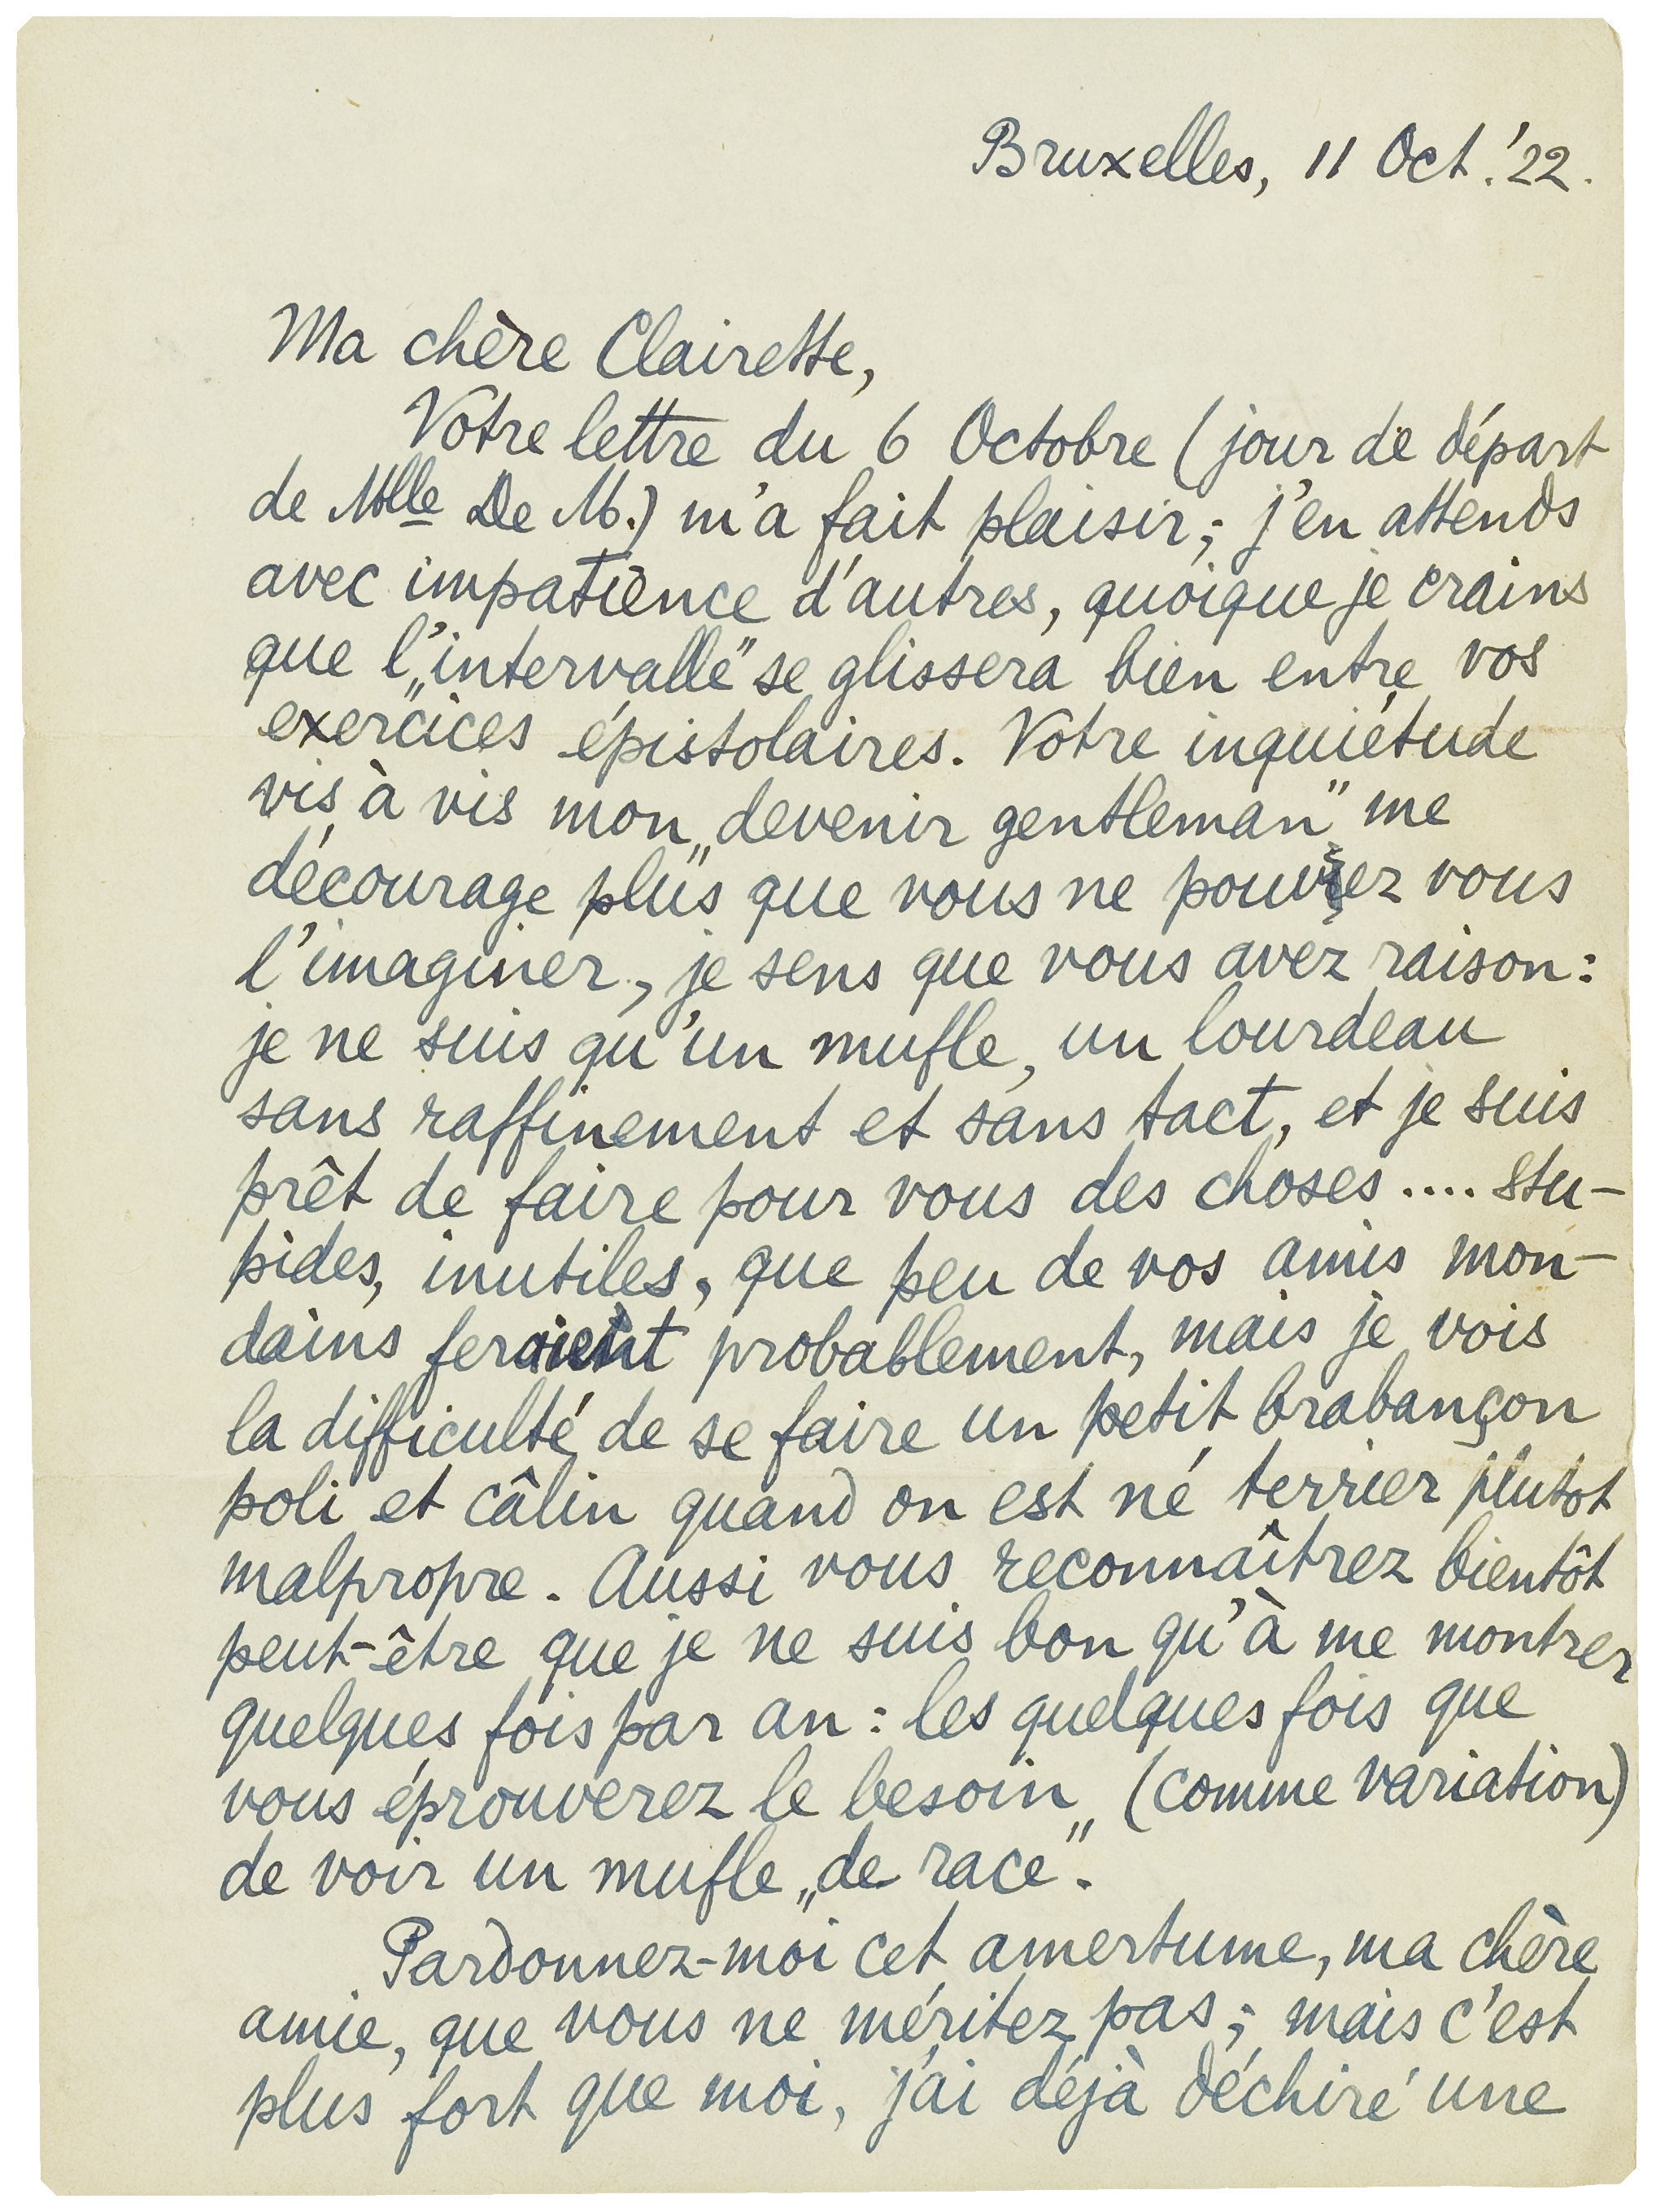 Bruxelles, 11 Oct.'22.
Ma chère Clairette,
Votre lettre du 6 Octobre (jour de départ
de Mlle De M.) m'a fait plaisir; j'en attends
avec impatience d'autres, quoique je crains
que l'„intervalle" se glissera bien entre vos
exercices épistolaires. Votre inquiétude
vis à vis mon „devenir gentleman" me
décourage plus que vous ne pouvez vous
l'imaginer, je sens que vous avez raison:
je ne suis qu'un mufle, un lourdeau
sans raffinement et sans tact, et je suis
prêt de faire pour vous des choses .... stu-
pides, inutiles, que peu de vos amis mon-
dains feraient probablement, mais je vois
la difficulté de se faire un petit brabançon
poli et câlin quand on est né terrier plutot
malpropre. Aussi vous reconnaîtrez bientôt
peut-être que je ne suis bon qu'à me montrer
quelques fois par an: les quelques fois que
vous éprouverez le besoin „ (comme variation)
de voir un mufle „de race".
Pardonnez-moi cet amertume, ma chère
amie, que vous ne méritez pas; mais c'est
plus fort que moi, j'ai déjà déchiré une